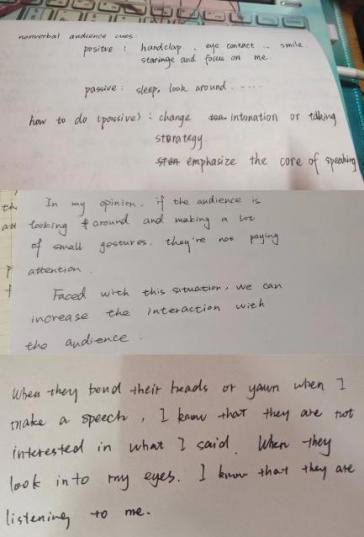 nonverbal audience cues:
positive : handclap , eye contact .. smile
staringe and focus on me.
passive : sleep, look around .....
how to do (passive) : change intonation or talking
strorategy.
emphasize the core of speaking
In my opinion, if the audience is
looking around and making a lot
of small gestures, they're not paying
attention.
Faced with this situation, we can
increase the interaction with
the audience.
When they bend their heads or yawn when I
make a speech, I know that they are not
interested in what I said. When they
look into my eyes. I know that they are
listening to me.